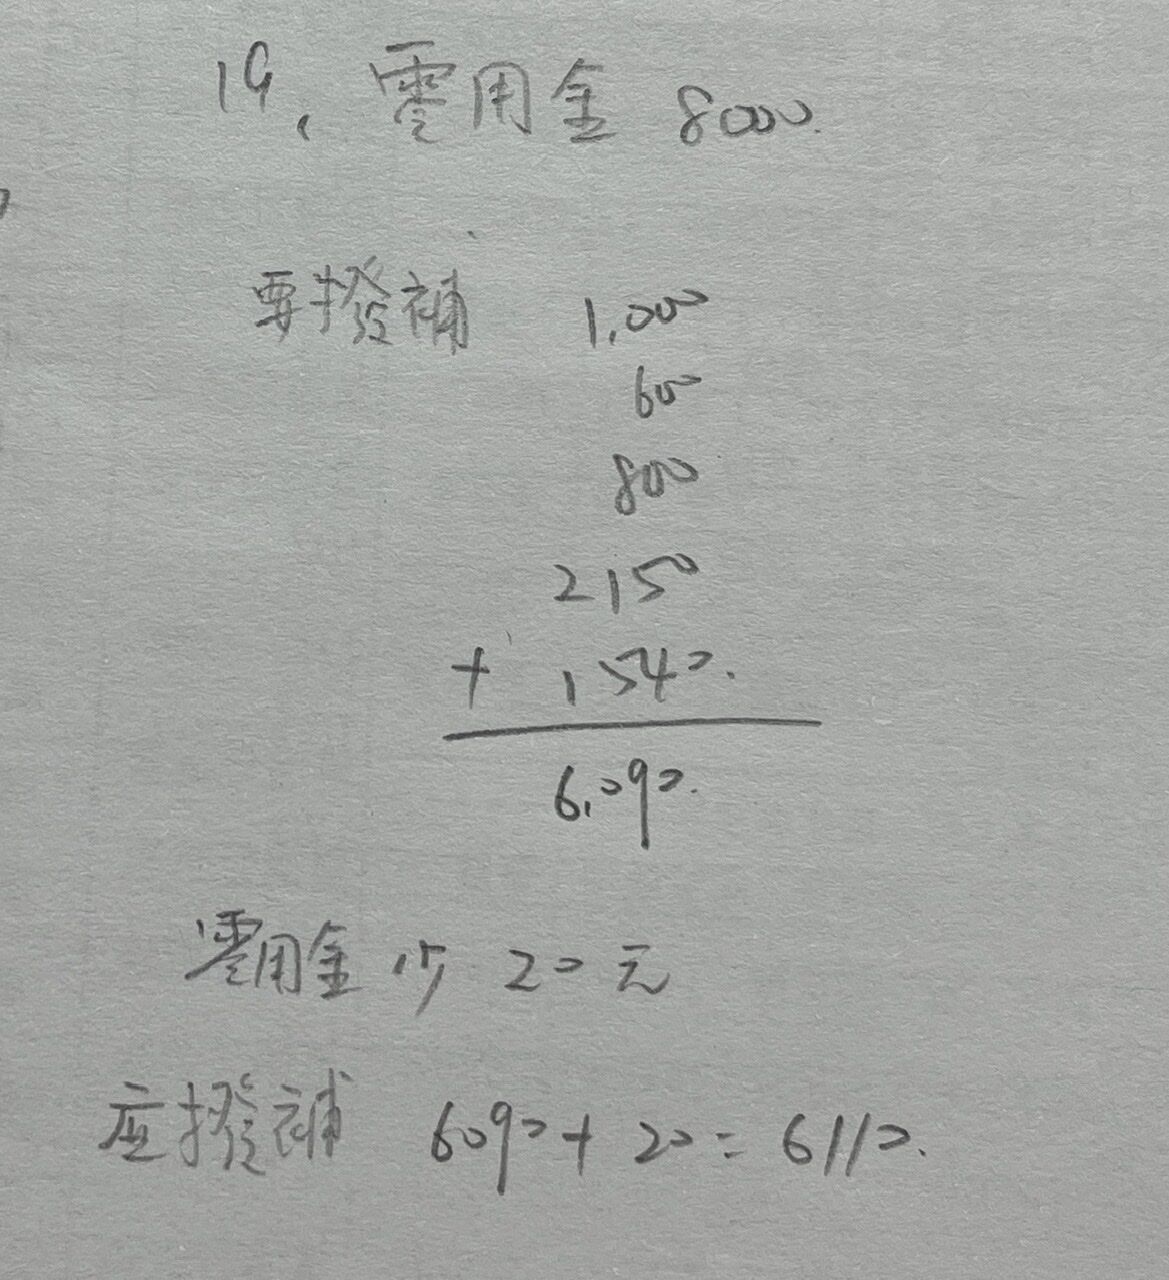 19、零用金 8000.
要撥補 1,000
600
800
2150
+ 1540.
6,090.
零用金少 20 元
应撥補 6090 + 20 = 6110.